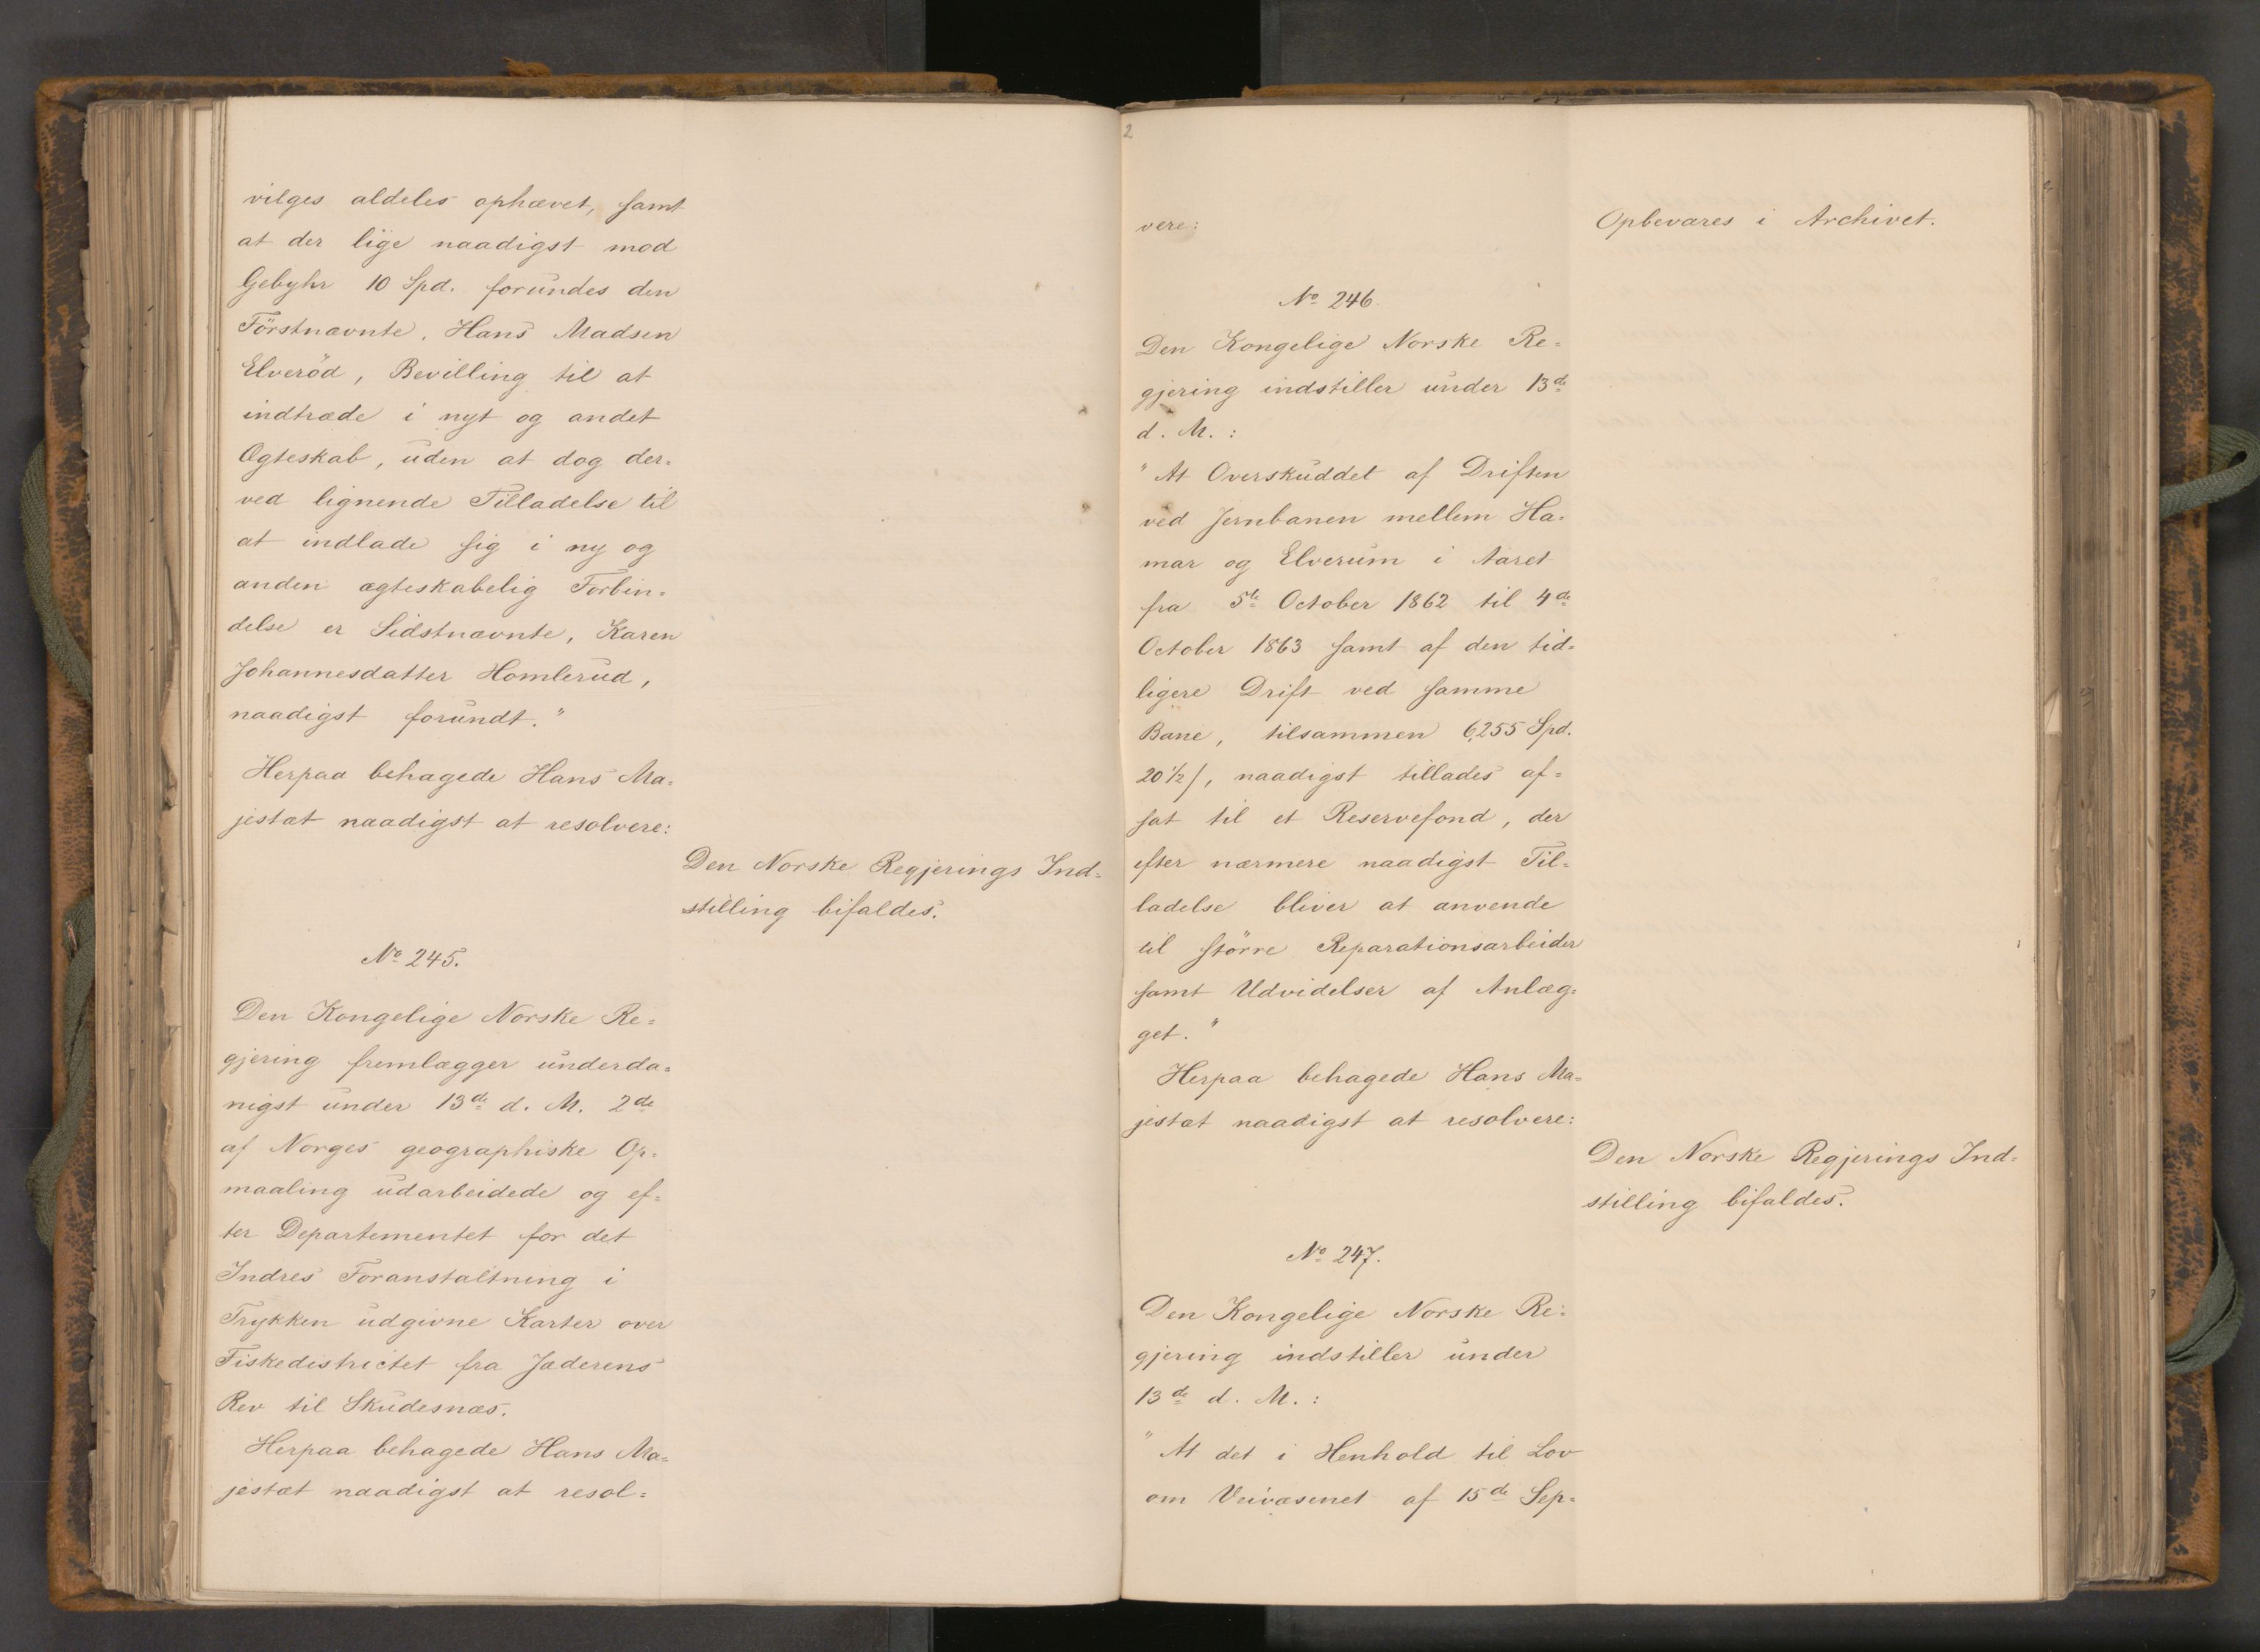 vilges aldeles ophævet, samt
at der lige naadigst mod
Gebyhr 10 Spd. forundes den
Förstnævnte, Hans Madsen
Elveröd, Bevilling til at
indtræde i nyt og andet
Ægteskab, uden at dog der=
ved lignende Tilladelse til
at indlade sig i ny og
anden ægteskabelig Forbin=
delse er Sidstnævnte, Karen
Johannesdatter Homlerud,
naadigst forundt."
Herpaa behagede Hans Ma=
jestæt naadigst at resolvere:
Den Norske Regjerings Ind=
stilling bifaldes.
No 245.
Den Kongelige Norske Re=
gjering fremlægger underda=
nigst under 13de d. M. 2de
af Norges geographiske Op=
maaling udarbeidede og ef=
ter Departementet for det
Indres Foranstaltning i
Trykken udgivne Karter over
Fiskedistrictet fra Jæderens
Rev til Skudesnæs.
Herpaa behagede Hans Ma=
jestæt naadigst at resol=
2
vere:
Opbevares i Archivet.
No 246.
Den Kongelige Norske Re=
gjering indstiller under 13de
d. M.:
"At Overskuddet af Driften
ved Jernbanen mellem Ha=
mar og Elverum i Aaret
fra 5te October 1862 til 4de
October 1863 samt af den tid=
ligere Drift ved samme
Bane, tilsammen 6,255 Spd.
20 1/2 /, naadigst tillades af=
sat til et Reservefond, der
efter nærmere naadigst Til=
ladelse bliver at anvende
til större Reparationsarbeider
samt Udvidelser af Anlæg=
get."
Herpaa behagede Hans Ma=
jestæt naadigst at resolvere:
Den Norske Regjerings Ind=
stilling bifaldes.
No 247.
Den Kongelige Norske Re=
gjering indstiller under
13de d. M.:
"At det i Henhold til Lov
om Veivæsenet af 15de Sep=